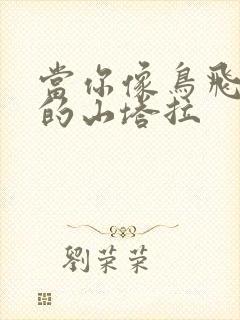 當你像鳥飛
的山塔拉
劉荣荣